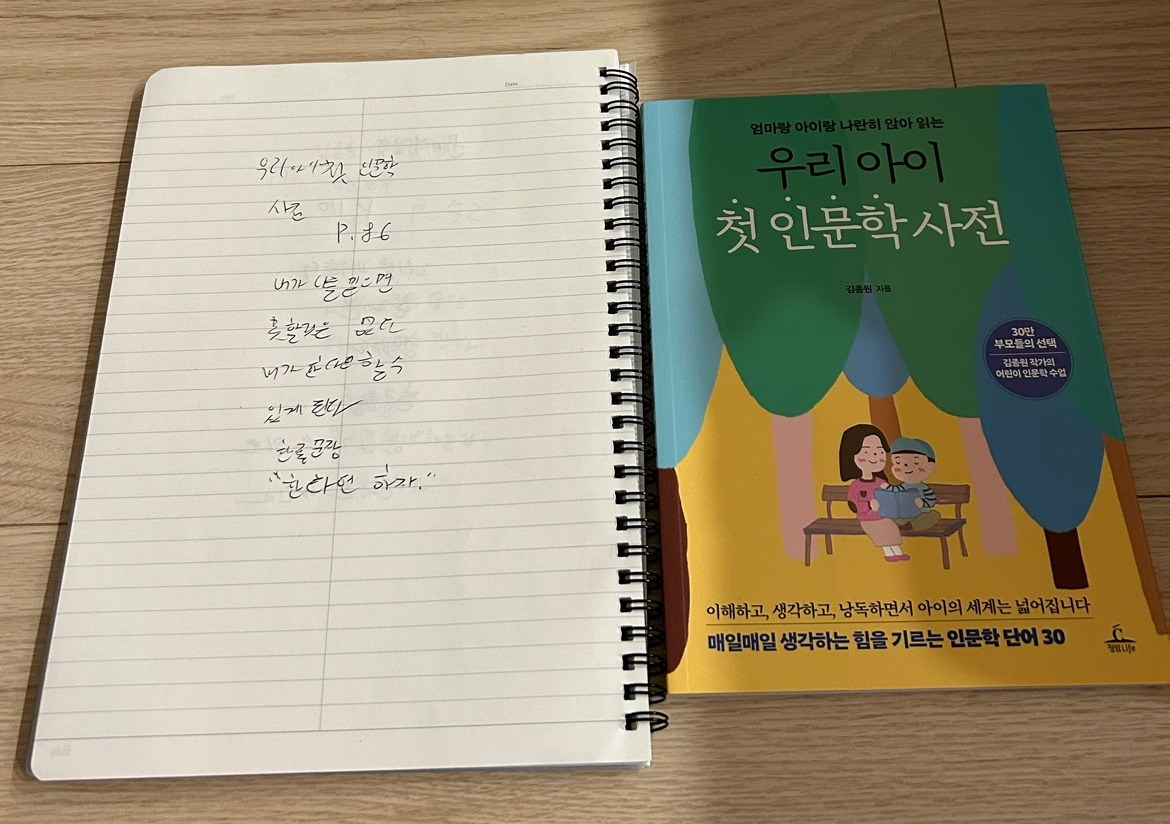 Date
우리아이 첫 인문학
사전
P. 86
내가 나를 믿으면
못할 일은 없고
내가 하면 할 수
있게 된다
한줄문장
"한다면 하자."
엄마랑 아이랑 나란히 앉아 읽는
우리 아이
첫 인문학 사전
김종원 지음
30만
부모들의 선택
김종원 작가의
어린이 인문학 수업
이해하고, 생각하고, 낭독하면서 아이의 세계는 넓어집니다
매일매일 생각하는 힘을 기르는 인문학 단어 30
청림Life